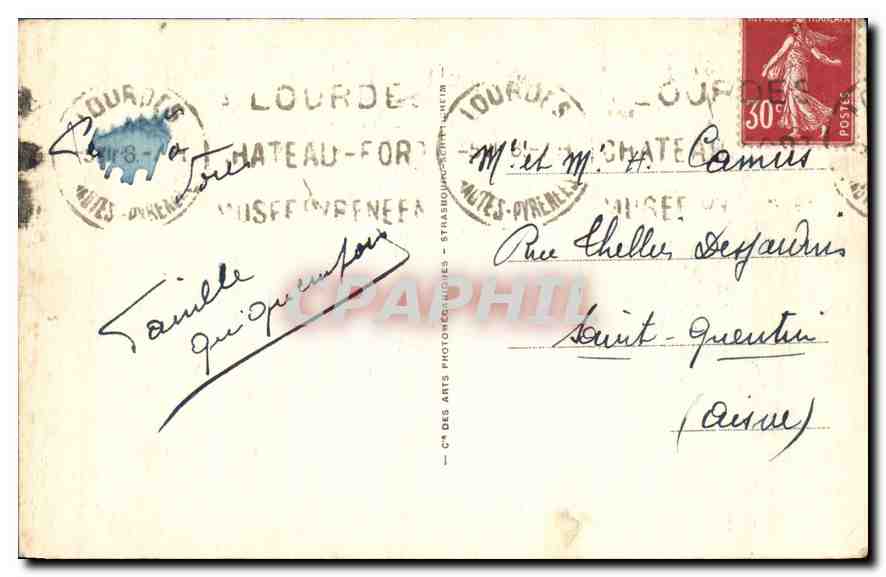 LOURDES
HAUTES-PYRENEES
LOURDES
CHATEAU-FORT
MUSEE PYRENEEN
LOURDES
HAUTES-PYRENEES
LOURDES
CHATEAU
MUSEE PY
REPUBLIQUE FRANÇAISE
30c
POSTES
Famille
Quiquempois
— Cie DES ARTS PHOTOMÉCANIQUES - STRASBOURG-SCHILTIGHEIM —
Mr et Me H. Camus
Rue Thellier Desjardins
Saint-Quentin
(Aisne)
CPAPHIL